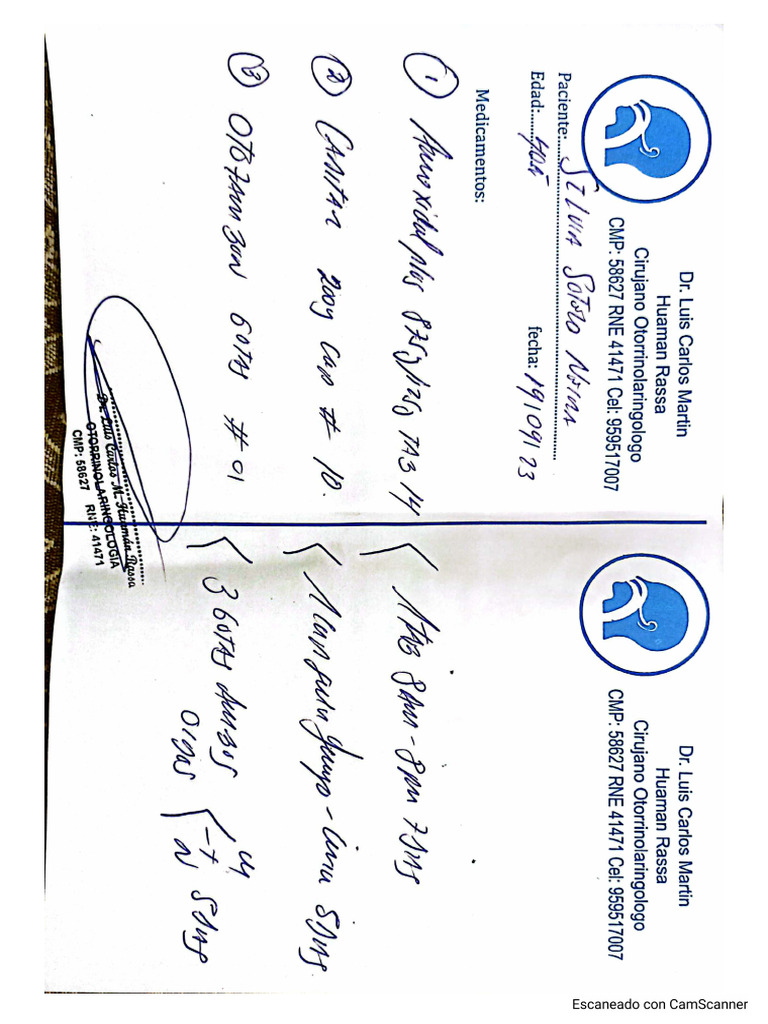 Dr. Luis Carlos Martin
Huaman Rassa
Cirujano Otorrinolaringologo
CMP: 58627 RNE 41471 Cel: 959517007
Paciente: SILVIA SOTOZO
Edad: 40a fecha: 19/09/23
Medicamentos:
① Amoxidal plus 875g/125g TAB 14
② 200g Cap # 10.
③ GOTAS # 01
Dr. Luis Carlos M. Huamán Rassa
OTORRINOLARINGOLOGIA
CMP: 58627 RNE: 41471
Dr. Luis Carlos Martin
Huaman Rassa
Cirujano Otorrinolaringologo
CMP: 58627 RNE 41471 Cel: 959517007
1 TAB 8AM - 8PM 7 DIAS
1 Cap - 5 DIAS
3 GOTAS AMBOS
OIDOS M
-T 5 DIAS
N
Escaneado con CamScanner